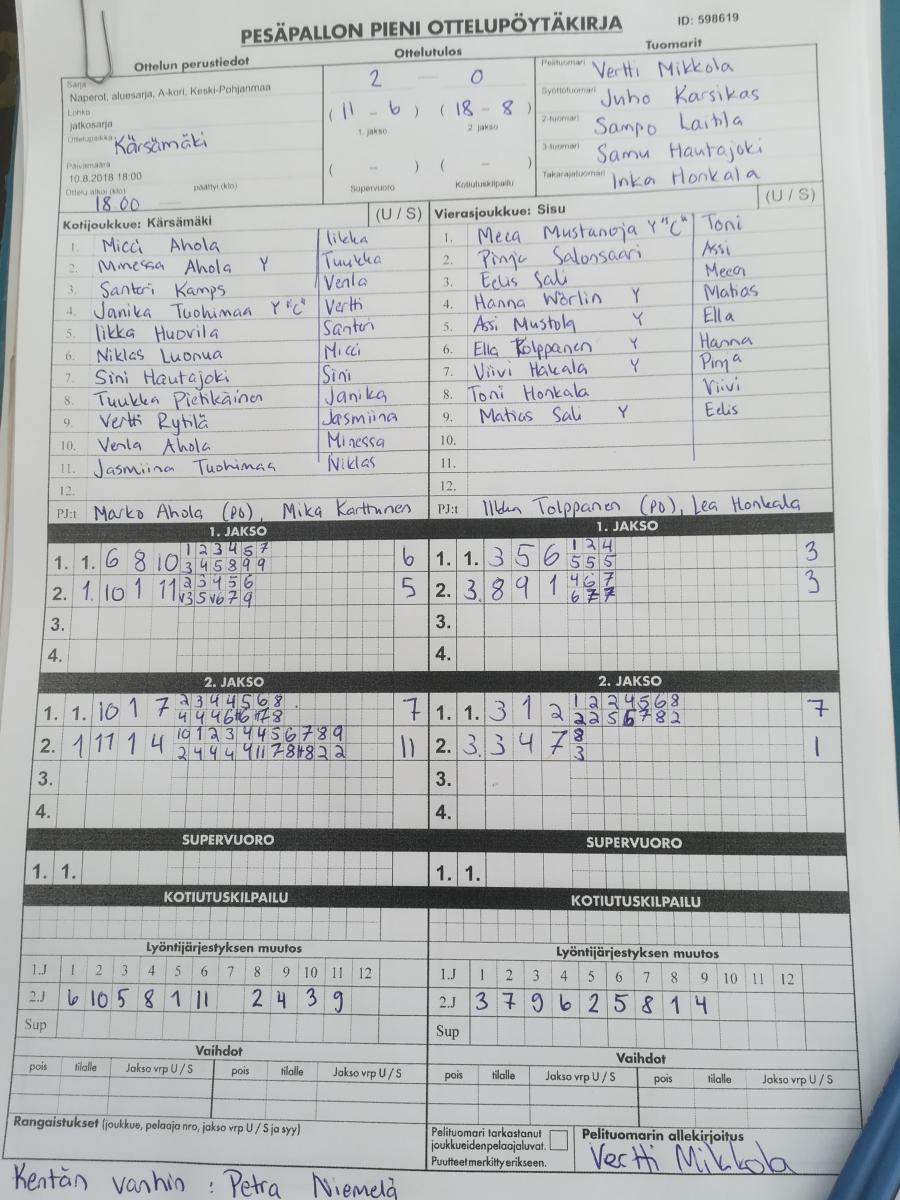 PESÄPALLON PIENI OTTELUPÖYTÄKIRJA
ID: 598619
Ottelun perustiedot
Ottelutulos
Tuomarit
Sarja
Naperot, aluesarja, A-kori, Keski-Pohjanmaa
Lohko
jatkosarja
Ottelupaikka Kärsämäki
Päivämäärä
10.8.2018 18:00
Ottelu alkoi (klo) päättyi (klo)
18.00
2 - 0
( 11 - 6 ) ( 18 - 8 )
1. jakso 2. jakso
( - ) ( - )
Supervuoro Kotiutuskilpailu
Pelituomari Vertti Mikkola
Syöttötuomari Juho Karsikas
2-tuomari Sampo Laitila
3-tuomari Samu Hautajoki
Takarajatuomari Inka Honkala
Kotijoukkue: Kärsämäki (U / S)
1. Micci Ahola Iikka
2. Minessa Ahola Y Tuukka
3. Santeri Kamps Venla
4. Janika Tuohimaa Y "C" Vertti
5. Iikka Huovila Santeri
6. Niklas Luonua Micci
7. Sini Hautajoki Sini
8. Tuukka Pietikäinen Janika
9. Vertti Rytilä Jasmiina
10. Venla Ahola Minessa
11. Jasmiina Tuohimaa Niklas
12.
PJ:t Marko Ahola (PO), Mika Karttunen
Vierasjoukkue: Sisu (U / S)
1. Meea Mustanoja Y "C" Toni
2. Pinja Salonsaari Assi
3. Eelis Sali Meea
4. Hanna Wörlin Y Matias
5. Assi Mustola Y Ella
6. Ella Tolppanen Y Hanna
7. Viivi Hakala Y Pinja
8. Toni Honkala Viivi
9. Matias Sali Y Eelis
10.
11.
12.
PJ:t Ilkka Tolppanen (PO), Lea Honkala
1. JAKSO
1. 1. 6 8 10 1 2 3 4 5 7 6
3 4 5 8 9 9
2. 1. 10 1 11 2 3 4 5 6 5
v3 5 v6 7 9
3.
4.
1. JAKSO
1. 1. 3 5 6 1 2 4 3
5 5 5
2. 3. 8 9 1 4 6 7 3
6 7 7
3.
4.
2. JAKSO
1. 1. 10 1 7 2 3 4 4 5 6 8 7
2. 1 11 1 4 10 1 2 3 4 4 5 6 7 8 9 11
3.
4.
2. JAKSO
1. 1. 3 1 2 1 2 2 4 5 6 8 7
2 2 5 6 7 8 2
2. 3. 3 4 7 8 1
3
3.
4.
SUPERVUORO
1. 1.
SUPERVUORO
1. 1.
KOTIUTUSKILPAILU
KOTIUTUSKILPAILU
Lyöntijärjestyksen muutos
1.J 1 2 3 4 5 6 7 8 9 10 11 12
2.J 6 10 5 8 1 11 2 4 3 9
Sup
Lyöntijärjestyksen muutos
1.J 1 2 3 4 5 6 7 8 9 10 11 12
2.J 3 7 9 6 2 5 8 1 4
Sup
Vaihdot
pois tilalle Jakso vrp U / S pois tilalle Jakso vrp U / S
Vaihdot
pois tilalle Jakso vrp U / S pois tilalle Jakso vrp U / S
Rangaistukset (joukkue, pelaaja nro, jakso vrp U / S ja syy)
Pelituomari tarkastanut
joukkueiden pelaajaluvat.
Puutteet merkitty erikseen.
Pelituomarin allekirjoitus
Vertti Mikkola
Kentän vanhin : Petra Niemelä